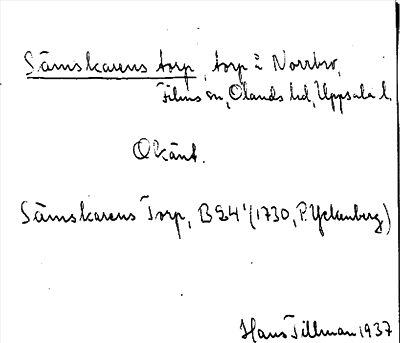 Sämskarens torp, torp i Norrbo,
Films sn, Olands hd, Uppsala l.
Okänt.
Sämskarens Torp, B24 1/ (1730, P. Yckenberg)
Hans Tillman 1937